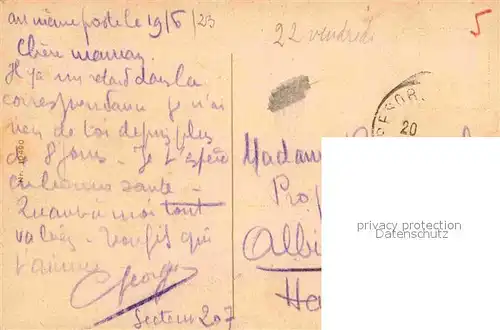 au même poste le 19/6/23
22 vendredi
5
Chère maman,
Il y a un retard dans la
correspondance je n'ai
rien de toi depuis plus
de 8 jours. Je t'espère
en bonne santé -
Quant à moi tout
va bien. Ton fils qui
t'aime
Georges
Secteur 207
Nr.
20
Madame
Prop
Albi
He
privacy protection